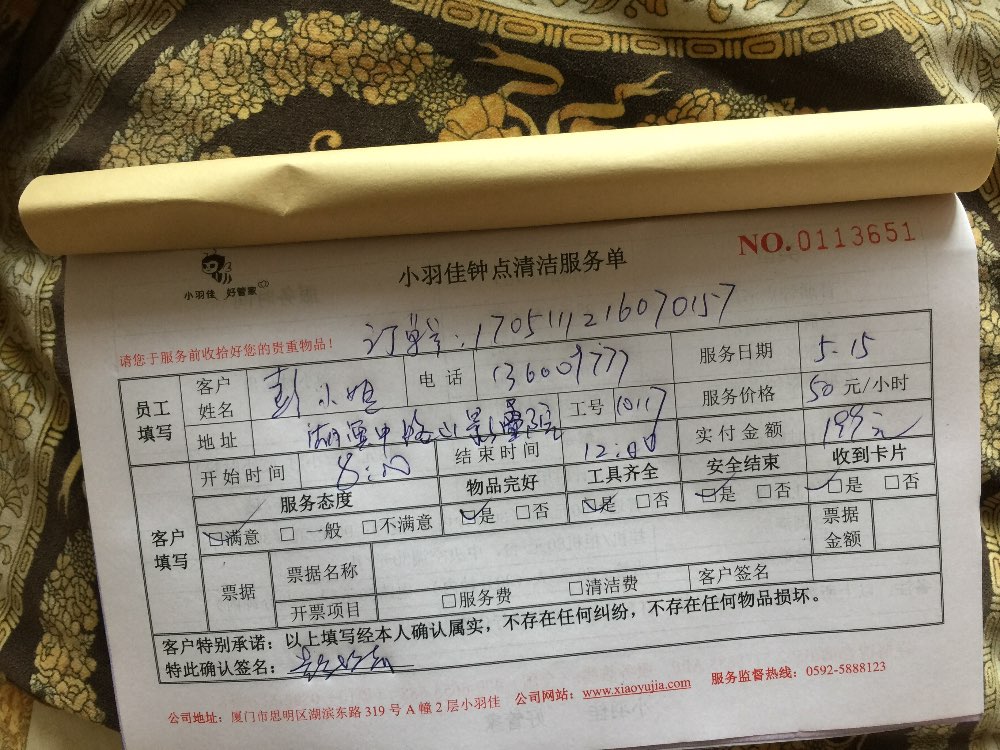 NO.0113651
小羽佳 好管家
小羽佳钟点清洁服务单
请您于服务前收拾好您的贵重物品！
订单号：1705111216070157
员工填写 客户姓名 彭小姐 电话 服务日期 5.15
地址 工号 服务价格 50 元/小时
开始时间 8:00 结束时间 12:00 实付金额 199元
客户填写 服务态度 物品完好 工具齐全 安全结束 收到卡片
☑满意 □ 一般 □不满意 ☑是 □否 ☑是 □否 ☑是 □否 ☑是 □否
票据 票据名称 票据金额
开票项目 □服务费 □清洁费 客户签名
客户特别承诺：以上填写经本人确认属实，不存在任何纠纷，不存在任何物品损坏。
特此确认签名：
公司地址：厦门市思明区湖滨东路 319 号 A 幢 2 层小羽佳 公司网站：www.xiaoyujia.com 服务监督热线：0592-5888123